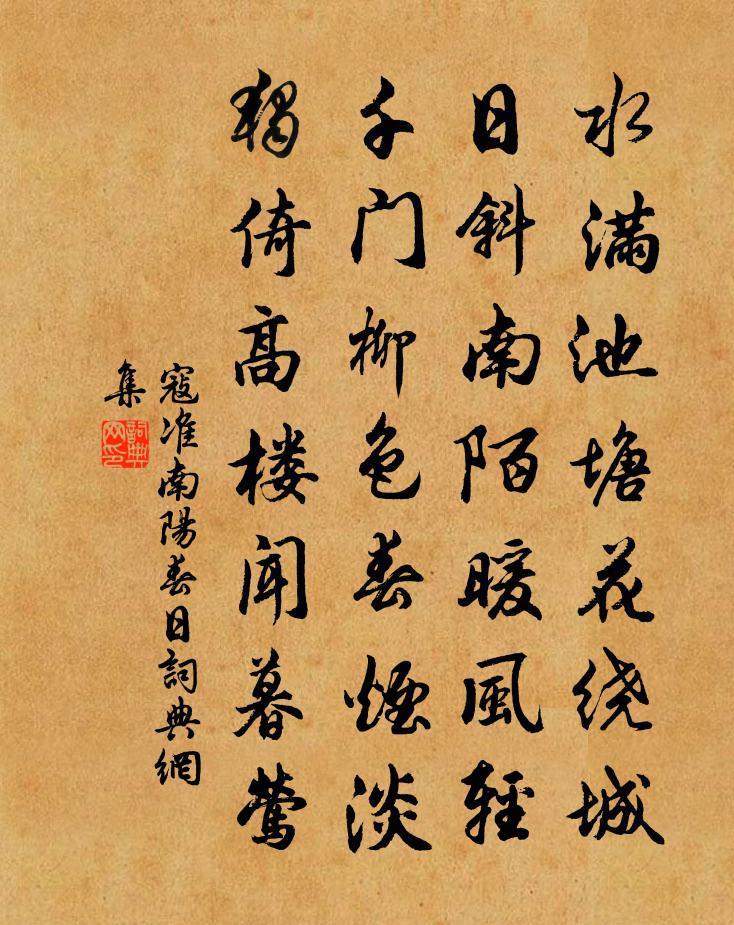 水满池塘花绕城
日斜南陌暖風輕
千门柳色春煙淡
獨倚高楼闻暮莺
寇准南陽春日詞典網
集
詞典
网印